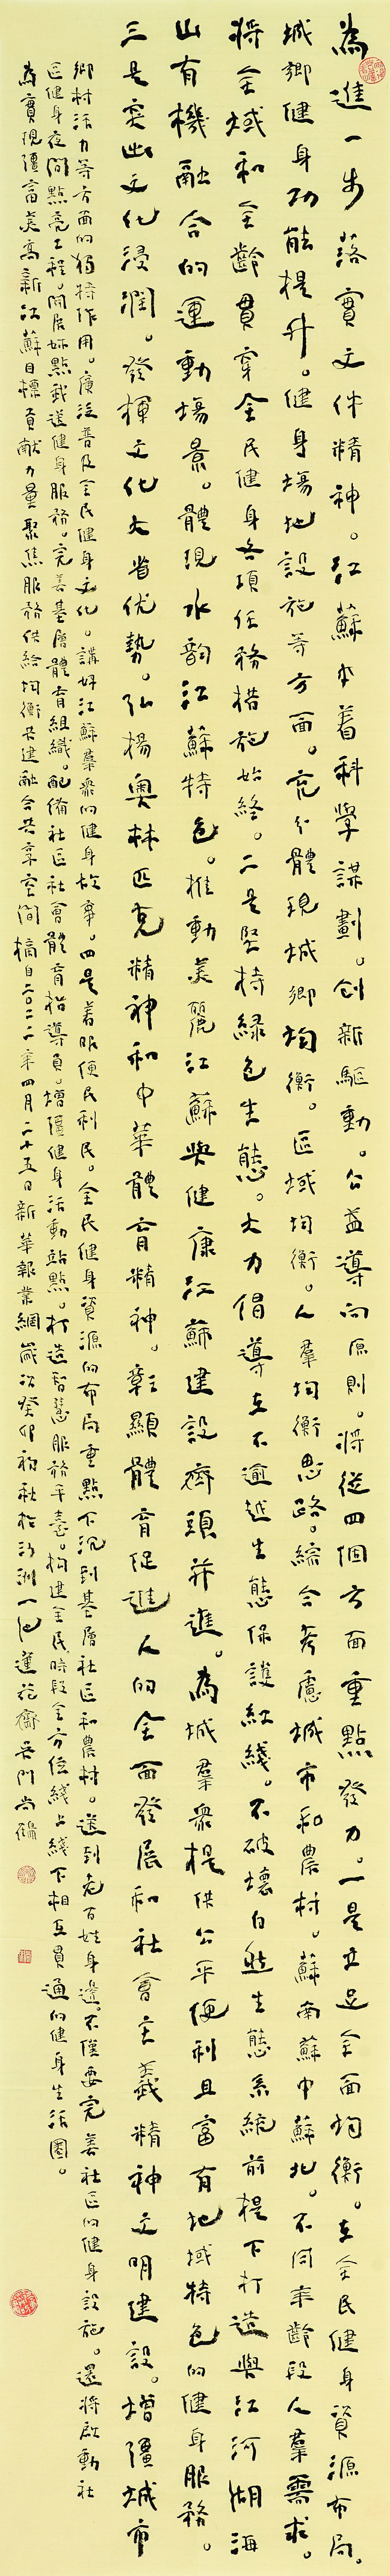 為進一步落實文件精神。江蘇本着科學謀劃。創新驅動。公益導向原則。將從四個方面重點發力。一是立足全面均衡。在全民健身資源布局。
城鄉健身功能提升。健身場地設施等方面。充分體現城鄉均衡。區域均衡。人羣均衡思路。綜合考慮城市和農村。蘇南蘇中蘇北。不同年齡段人羣需求。
將全域和全齡貫穿全民健身各項任務措施始終。二是堅持綠色生態。大力倡導在不逾越生態保護紅綫。不破壞自然生態系統前提下打造與江河湖海
山有機融合的運動場景。體現水韵江蘇特色。推動美麗江蘇與健康江蘇建設齊頭并進。為城羣衆提供公平便利且富有地域特色的健身服務。
三是突出文化浸潤。發揮文化大省優勢。弘揚奧林匹克精神和中華體育精神。彰顯體育促進人的全面發展和社會主義精神文明建設。增彊城市
鄉村活力等方面的獨特作用。廣泛普及全民健身文化。講好江蘇羣衆的健身故事。四是着眼便民利民。全民健身資源的布局重點下沉到基層社區和農村。送到老百姓身邊。不僅要完善社區的健身設施。還將啟動社
區健身夜間點亮工程。開展婦點武送健身服務。完善基層體育組織。配備社區社會體育指導員。增彊健身活動站點。打造智慧服務平臺。构建全民時段全方位綫上綫下相互貫通的健身生活圈。
為實現彊富美高新江蘇目標貢献力量聚焦服務供給均衡共建融合共享空間摘自二〇二二年四月二十五日新華報業網歲次癸卯初秋於汸洲一色蓮花齋吳門尚礪